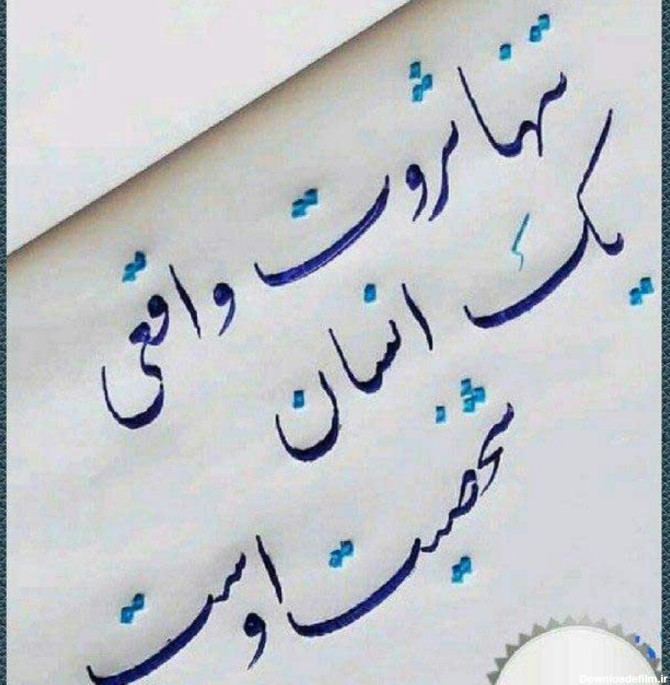 تنها ثروت واقعی
یک انسان
شخصیت اوست
Downloadefilm.ir